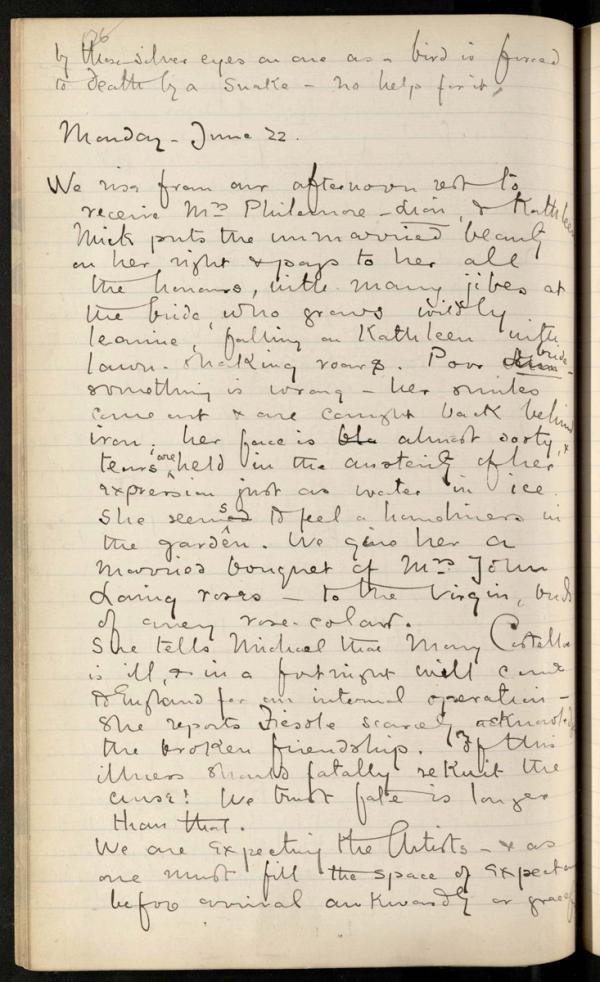 126
by those silver eyes on one as a bird is forced
to death by a snake – no help for it.
Monday – June 22.
We rise from our afternoon rest to
receive Mrs Philimore – dion, & Kathleen
Mick puts the unmarried beauty
on her right & pays to her all
the honours, with many jibes at
the bride, who grows wildly
leonine, falling on Kathleen with
lawn-shaking roars. Poor bride –
something is wrong – her smiles
come out & are caught back behind
iron; her face is almost sooty, &
tears are held in the austerity of her
expression just as water in ice.
She seems to feel a homeliness in
the garden. We give her a
married bouquet of Mrs John
Laing roses – to the Virgin, buds
of rose-colour.
She tells Michael that Mary Costelloe
is ill, & in a fortnight will come
to England for an internal operation –
She reports Fiesole scarcely acknowled
the broken friendship. If this
illness should fatally reknit the
curse! We trust fate is longer
than that.
We are expecting the Artists – & as
one must fill the space of expectan
before arrival awkwardly or gracef